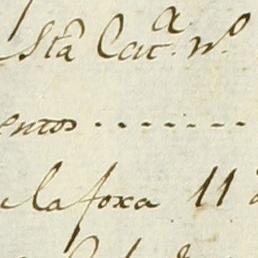 Sta Cat.a n.o
entos ........
la foxa 11